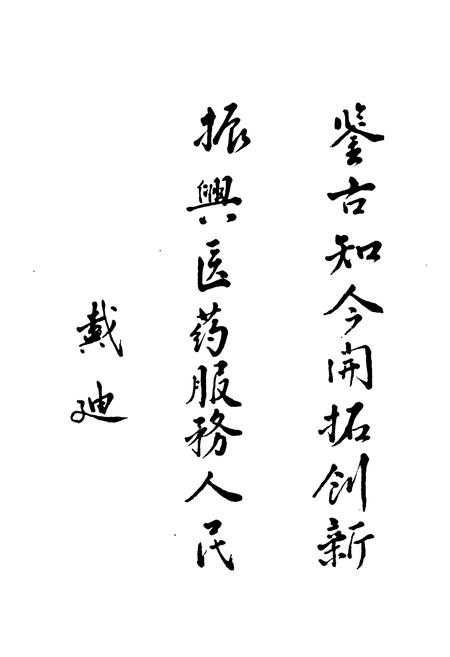 鉴古知今開拓创新
振興医药服務人民
戴迪